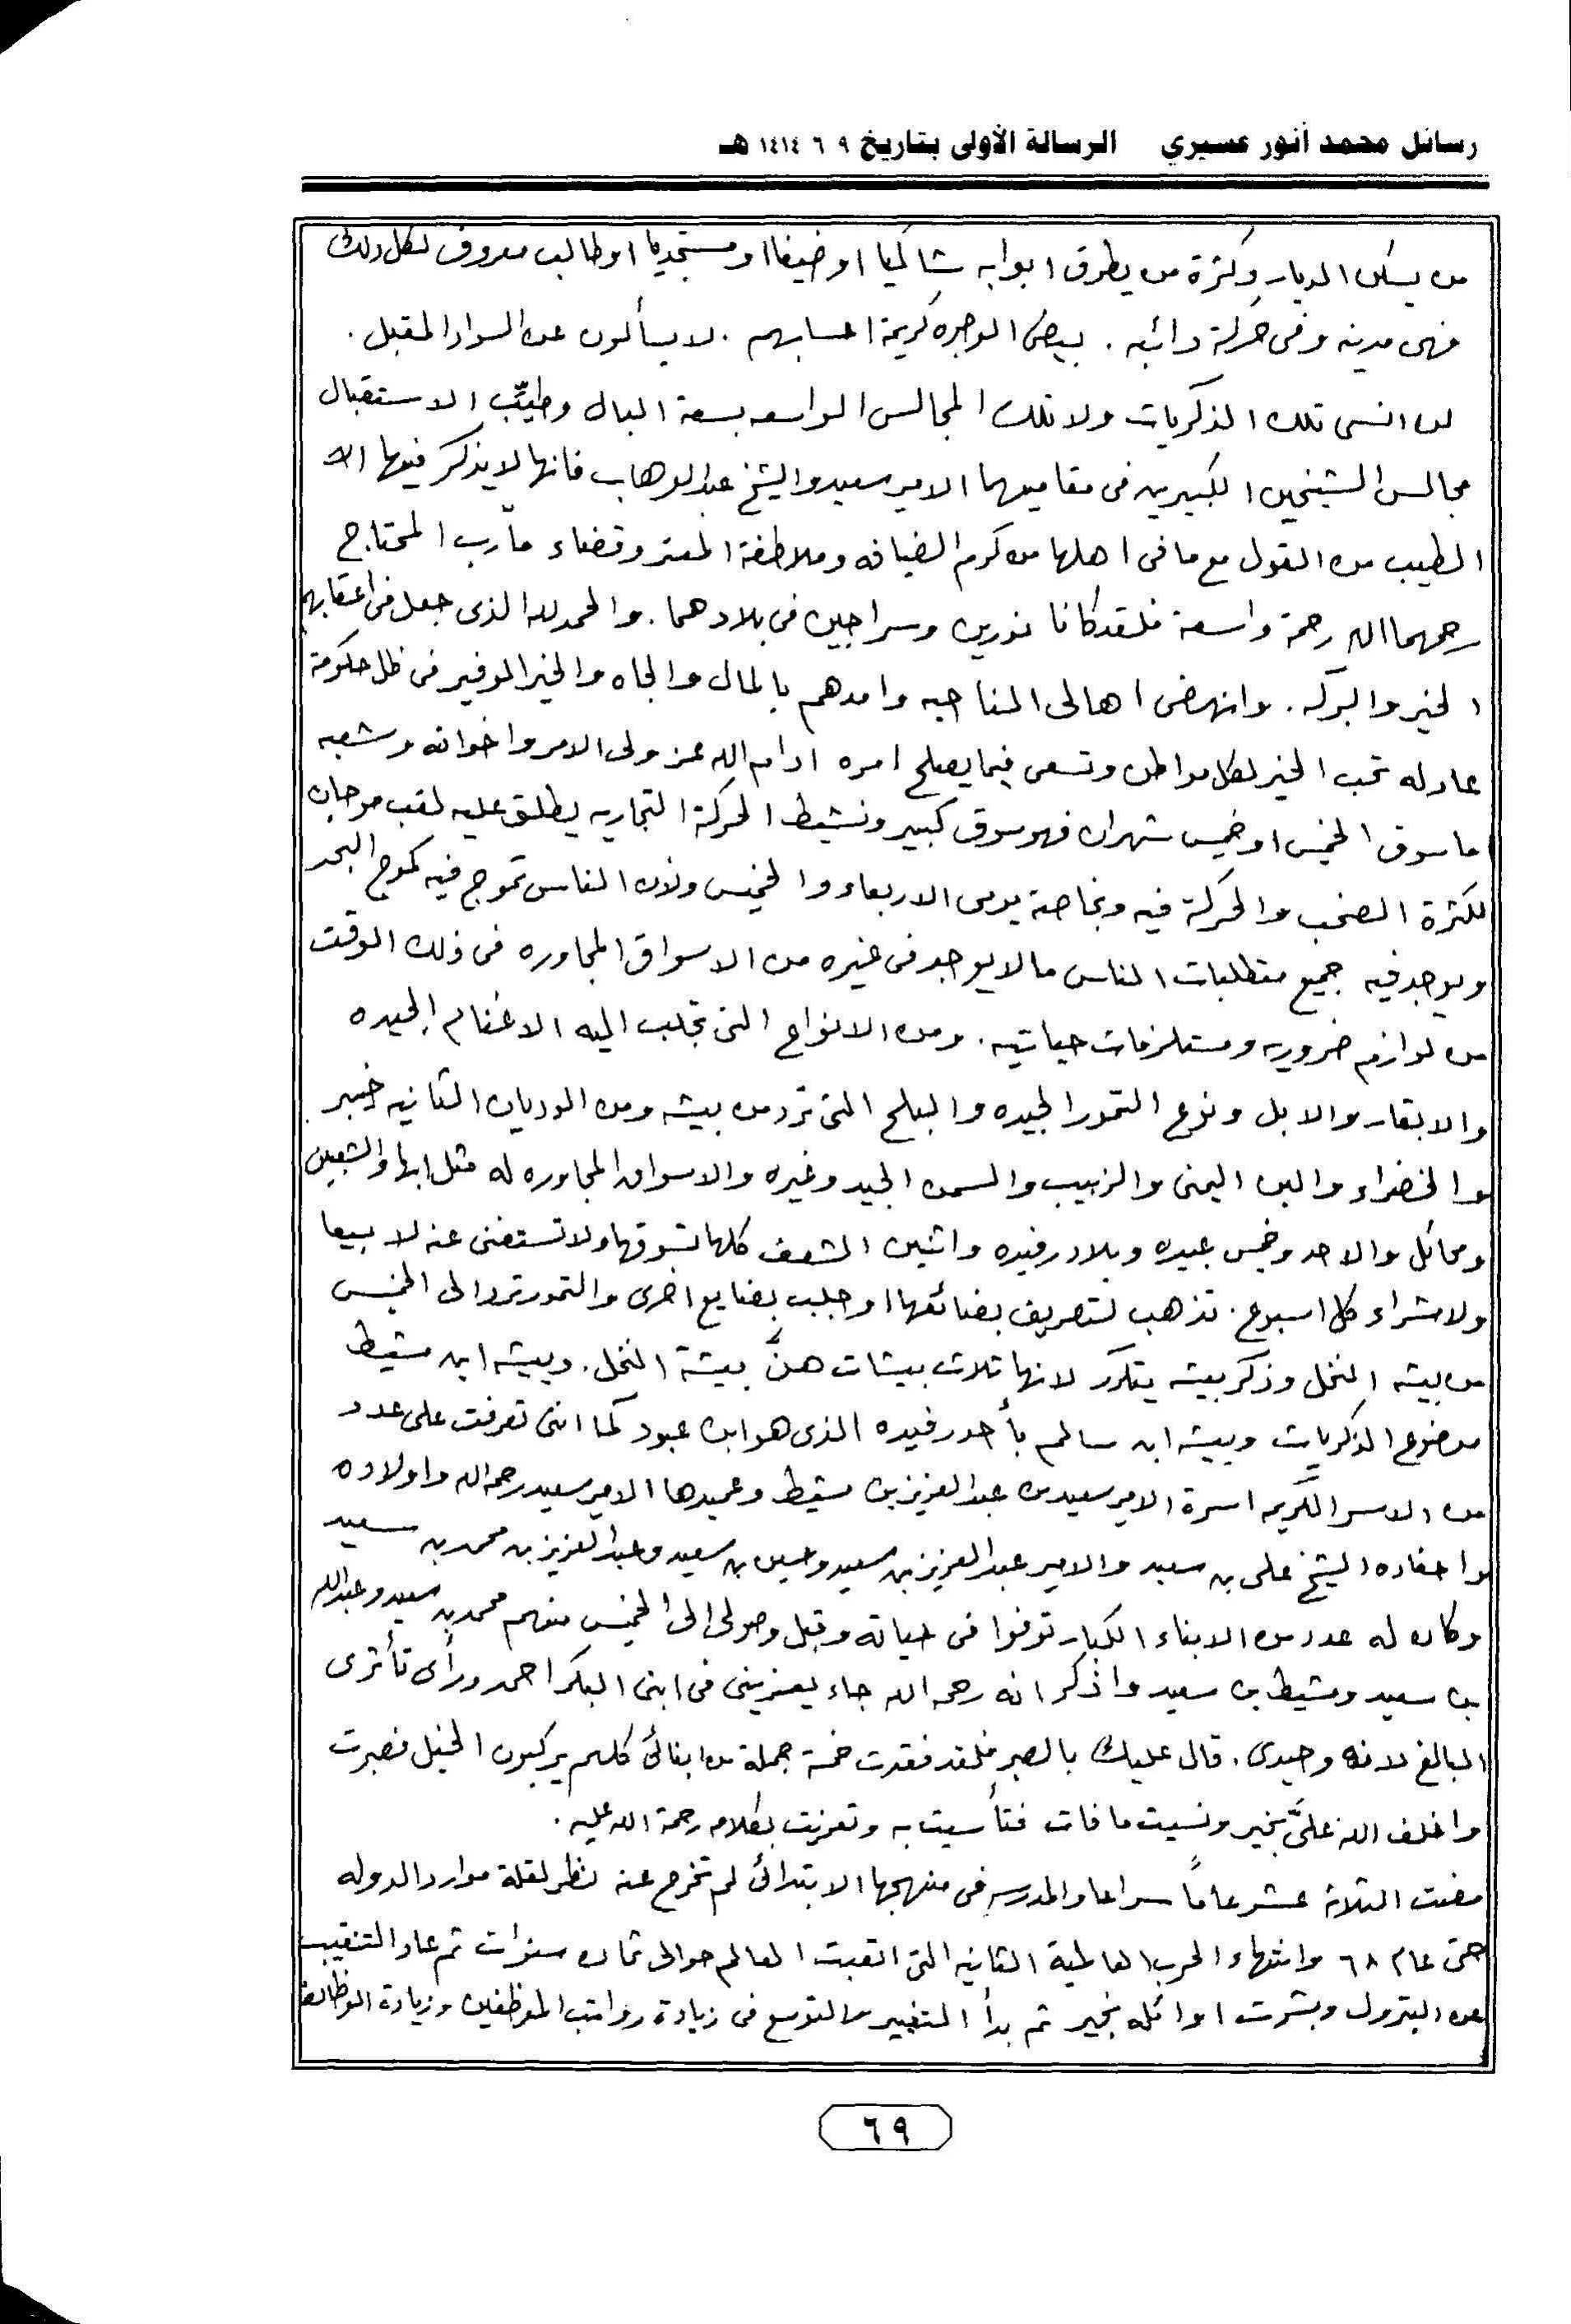 رسائل محمد أنور عسيري الرسالة الأولى بتاريخ ٩ ٦ ١٤١٤ هـ
من يسكن الديار وكثرة من يطرق ابوابه شاكيا او ضيفا او مستجديا او طالب معروف لكل ذلك
فهى مدينه وفى حركة دائبه . بيض الوجوه كريمة احسابهم . لا يسألون عن السواد المقبل .
لن انسى تلك الذكريات ولا تلك المجالس الواسعه بسعة البال وطيّب الاستقبال
مجالس الشيخين الكبيرين فى مقاميهما الامير سعيد والشيخ عبدالوهاب فانها لا يذكر فيها الا
الطيب من القول مع ما فى اهلها من كرم الضيافه وملاطفة المعتر وقضاء مآرب المحتاج
رحمهما الله رحمة واسعة فلقد كانا نورين وسراجين فى بلادهما . والحمد لله الذى جعل فى اعقابهم
الخير والبركه . وانهض اهالى المناحيه وامدهم بالمال والجاه والخير الوفير فى ظل حكومة
عادله تحب الخير لكل مواطن وتسعى فيما يصلح امره ادام الله عز ولى الامر واخوانه وشعبه
اما سوق الخميس او خميس شهران فهو سوق كبير ونشيط الحركة التجاريه يطلق عليه لقب موجان
لكثرة الصخب والحركة فيه وبخاصة يومى الاربعاء والخميس ولان الناس تموج فيه كموج البحر
ويوجد فيه جميع متطلبات الناس ما لا يوجد فى غيره من الاسواق المجاوره فى ذلك الوقت
من لوازم ضروريه ومستلزمات حياتيه . ومن الانواع التى تجلب اليه الاغنام الجيده
والابقار والابل ونوع التمور الجيده والبلح التى ترد من بيشه ومن الوديان الثانيه خيبر
والخضراء والبن اليمنى والزبيب والسمن الجيد وغيره والاسواق المجاوره له مثل ابها والشعبين
ومحائل والاحد وخميس عبيده وبلاد رفيده واثنين الشعف كلها تسوقها ولا تستغنى عنه لا بيعا
ولا شراء كل اسبوع . تذهب لتصريف بضائعها او جلب بضايع اخرى والتمور ترد الى الخميس
من بيشه النخل وذكر بيشه يتكرر لانها ثلاث بيشات هنَّ بيشة النخل . وبيشه ابن مشيط
موضوع الذكريات وبيشه ابن سالم بأحد رفيده الذى هو ابن عبود كما اننى تعرفت على عدد
من الاسر الكريمه اسرة الامير سعيد بن عبدالعزيز بن مشيط وعميدها الامير سعيد رحمه الله واولاده
واحفاده الشيخ على بن سعيد والامير عبدالعزيز بن سعيد وحسين بن سعيد وعبدالعزيز بن محمد بن سعيد
وكان له عدد من الابناء الكبار توفوا فى حياته وقبل وصولى الى الخميس منهم محمد بن سعيد وعبدالله
بن سعيد ومشيط بن سعيد واذكر انه رحمه الله جاء يعزينى فى ابنى البكر احمد ورأى تأثرى
البالغ لانه وحيدى . قال عليك بالصبر فلقد فقدت خمسة جملة من ابنائى كلهم يركبون الخيل فصبرت
واخلف الله علىَّ بخير ونسيت ما فات فتأسيت به وتعزيت بكلامه رحمة الله عليه .
مضت الثلاثة عشر عاماً سراعا والمدرسه فى منهجها الابتدائى لم تخرج عنه نظر لقلة موارد الدوله
حتى عام ٦٨ وانتهاء الحرب العالمية الثانيه التى اتعبت العالم حوالى ثمان سنوات ثم عاد التنقيب
عن البترول وبشرت اوائله بخير ثم بدأ التغيير والتوسع فى زيادة رواتب الموظفين وزيادة الوظائف
٦٩